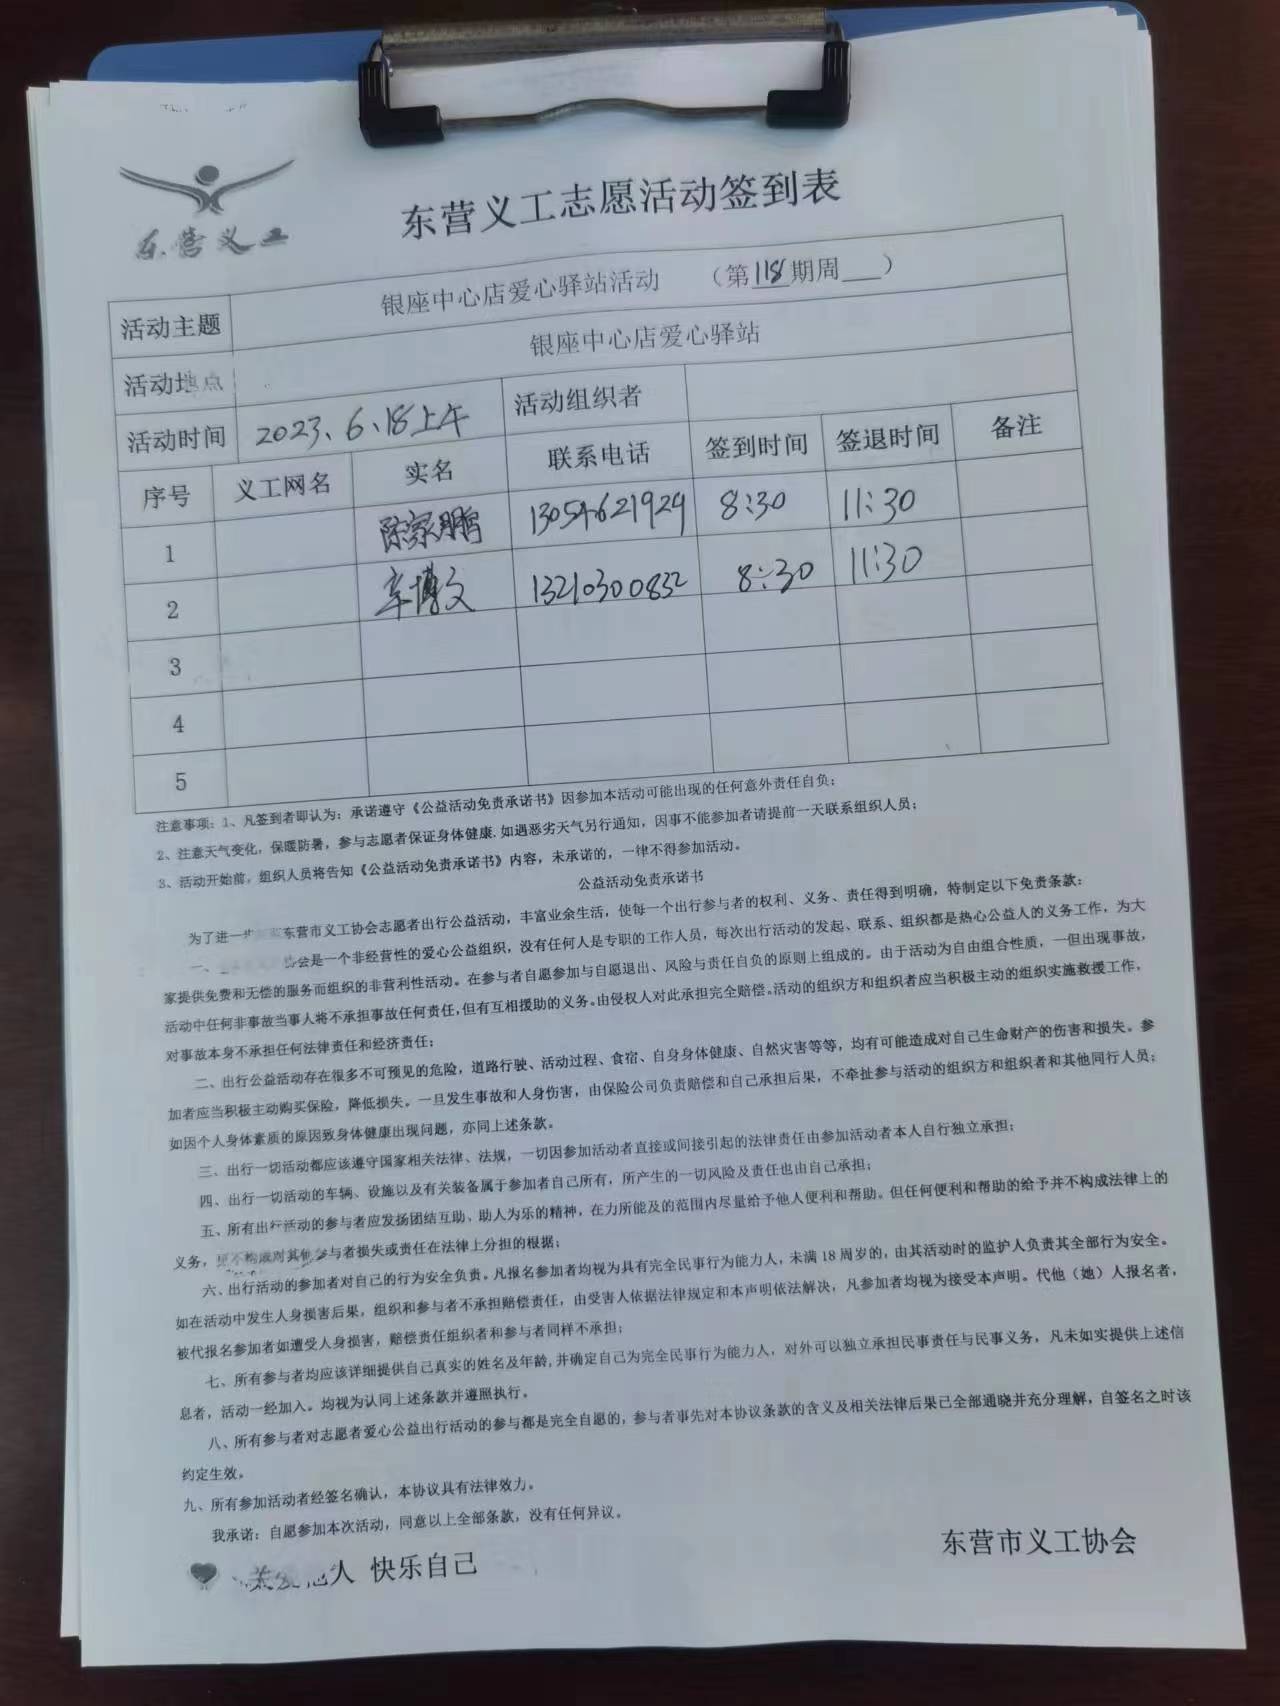 东营义工
东营义工志愿活动签到表
活动主题 银座中心店爱心驿站活动 （第118期周___）
活动地点 银座中心店爱心驿站
活动时间 2023、6、18上午 活动组织者
序号 义工网名 实名 联系电话 签到时间 签退时间 备注
1 陈家鹏 13054621929 8:30 11:30
2 辛博文 13210300832 8:30 11:30
3
4
5
注意事项：1、凡签到者即认为：承诺遵守《公益活动免责承诺书》因参加本活动可能出现的任何意外责任自负；
2、注意天气变化，保暖防暑，参与志愿者保证身体健康.如遇恶劣天气另行通知，因事不能参加者请提前一天联系组织人员；
3、活动开始前，组织人员将告知《公益活动免责承诺书》内容，未承诺的，一律不得参加活动。
公益活动免责承诺书
为了进一 东营市义工协会志愿者出行公益活动，丰富业余生活，使每一个出行参与者的权利、义务、责任得到明确，特制定以下免责条款：
一、 会是一个非经营性的爱心公益组织，没有任何人是专职的工作人员，每次出行活动的发起、联系、组织都是热心公益人的义务工作，为大
家提供免费和无偿的服务而组织的非营利性活动。在参与者自愿参加与自愿退出、风险与责任自负的原则上组成的。由于活动为自由组合性质，一但出现事故，
活动中任何非事故当事人将不承担事故任何责任，但有互相援助的义务。由侵权人对此承担完全赔偿。活动的组织方和组织者应当积极主动的组织实施救援工作，
对事故本身不承担任何法律责任和经济责任；
二、出行公益活动存在很多不可预见的危险，道路行驶、活动过程、食宿、自身身体健康、自然灾害等等，均有可能造成对自己生命财产的伤害和损失。参
加者应当积极主动购买保险，降低损失。一旦发生事故和人身伤害，由保险公司负责赔偿和自己承担后果，不牵扯参与活动的组织方和组织者和其他同行人员；
如因个人身体素质的原因致身体健康出现问题，亦同上述条款。
三、出行一切活动都应该遵守国家相关法律、法规，一切因参加活动者直接或间接引起的法律责任由参加活动者本人自行独立承担；
四、出行一切活动的车辆、设施以及有关装备属于参加者自己所有，所产生的一切风险及责任也由自己承担；
五、所有出行活动的参与者应发扬团结互助、助人为乐的精神，在力所能及的范围内尽量给予他人便利和帮助。但任何便利和帮助的给予并不构成法律上的
义务，更不构成对其他参与者损失或责任在法律上分担的根据；
六、出行活动的参加者对自己的行为安全负责。凡报名参加者均视为具有完全民事行为能力人，未满18周岁的，由其活动时的监护人负责其全部行为安全。
如在活动中发生人身损害后果，组织和参与者不承担赔偿责任，由受害人依据法律规定和本声明依法解决，凡参加者均视为接受本声明。代他（她）人报名者，
被代报名参加者如遭受人身损害，赔偿责任组织者和参与者同样不承担；
七、所有参与者均应该详细提供自己真实的姓名及年龄,并确定自己为完全民事行为能力人，对外可以独立承担民事责任与民事义务，凡未如实提供上述信
息者，活动一经加入。均视为认同上述条款并遵照执行。
八、所有参与者对志愿者爱心公益出行活动的参与都是完全自愿的，参与者事先对本协议条款的含义及相关法律后果已全部通晓并充分理解，自签名之时该
约定生效。
九、所有参加活动者经签名确认，本协议具有法律效力。
我承诺：自愿参加本次活动，同意以上全部条款，没有任何异议。
人 快乐自己
东营市义工协会